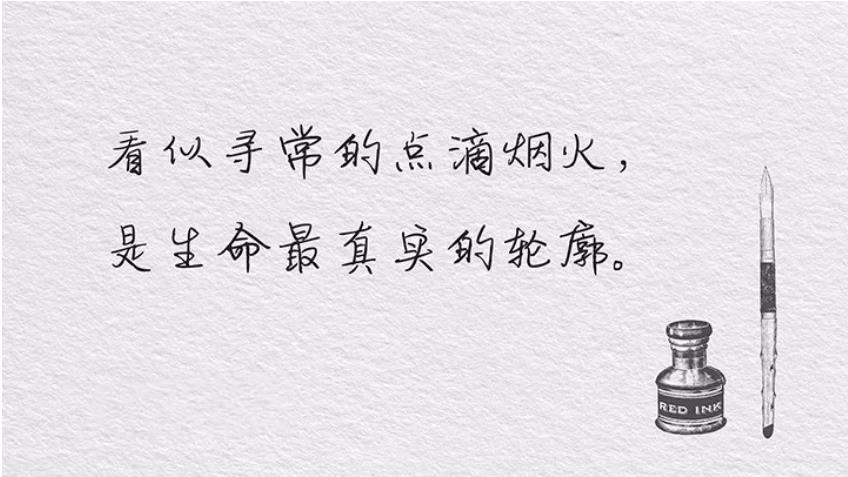 看似寻常的点滴烟火，
是生命最真实的轮廓。
RED INK